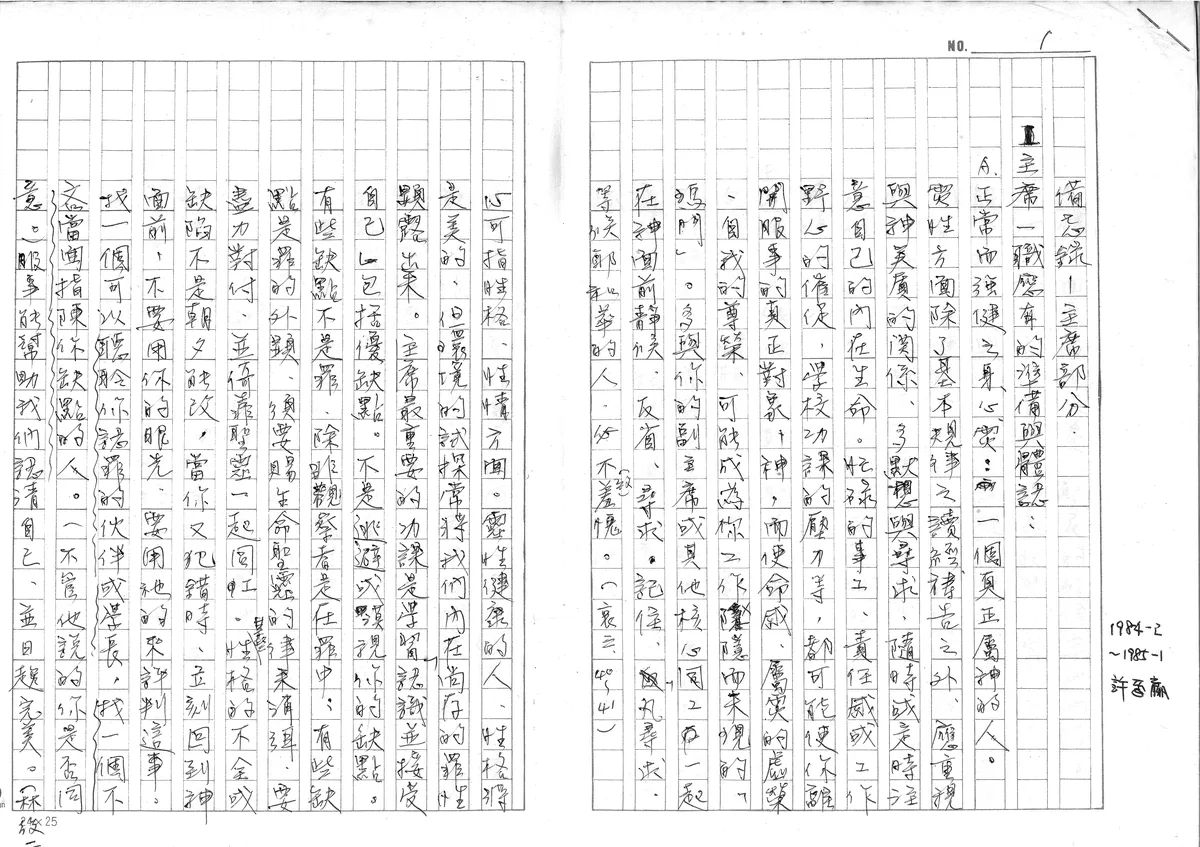 NO. 1
備忘錄—主席部分.
I 主席一職應有的準備與體認:
A.正常而强健之身心靈:一個真正屬神的人。
靈性方面除了基本規律之讀經禱告之外、應重視
與神美廣的関係、多默想與尋求、隨時或定時注
意自己的內在生命。忙碌的事工、責任感或工作
野心的催促、學校功課的壓力等,都可能使你離
開服事的真正對象,神,而使命感、屬靈的虛榮
、自我的尊榮、可能成為你工作隱而未現的「
瑪門」。多與你的副主席或其他核心同工一起
在神面前靜候、反省、尋求。記住、「凡尋求、
等候耶和華的人、必不(致)羞愧。(哀三40~41)
心可指性格、性情方面。靈性健康的人、性格得
是美的、但環境的試探常將我們內在尚存的罪性
顯露出來。主席最重要的功課是學習「認識並接受
自己」包括優缺點。不是逃避或漠視你的缺點。
有些缺點不是罪、除非觀察者是在罪中;有些缺
點是罪的外顯、須要賜生命聖靈的律來消殺、要
盡力對付、並倚靠聖靈一起同工。性格的不全或
缺陷不是朝夕能改,當你又犯錯時、立刻回到神
面前,不要用你的眼光、要用祂的來評判這事。
找一個可以聽你認罪的伙伴或學長,找一個不
吝當面指陳你缺點的人。(不管他說的你是否同
意。)服事能幫助我們認清自己、並日趨完美。(林
×25
1984-2
~1985-1